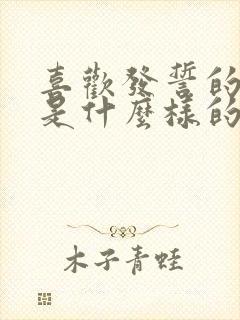 喜歡發誓的
是什麼樣的
木子青蛙